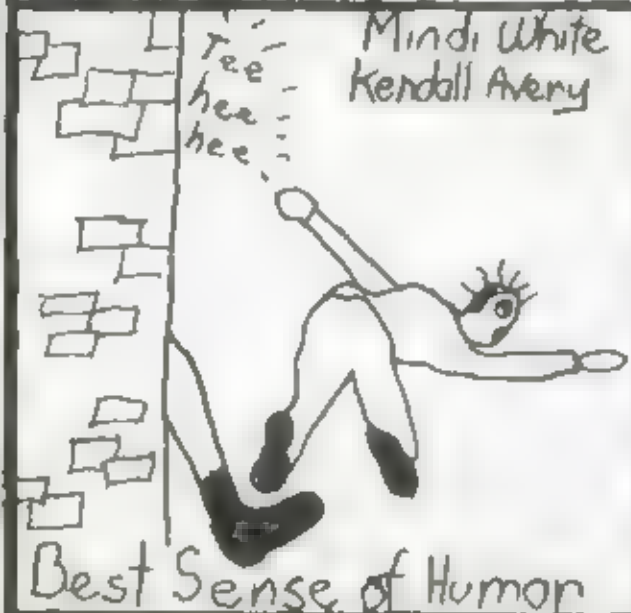 Tee
hee
hee
Mindi White
Kendall Avery
Best Sense of Humor